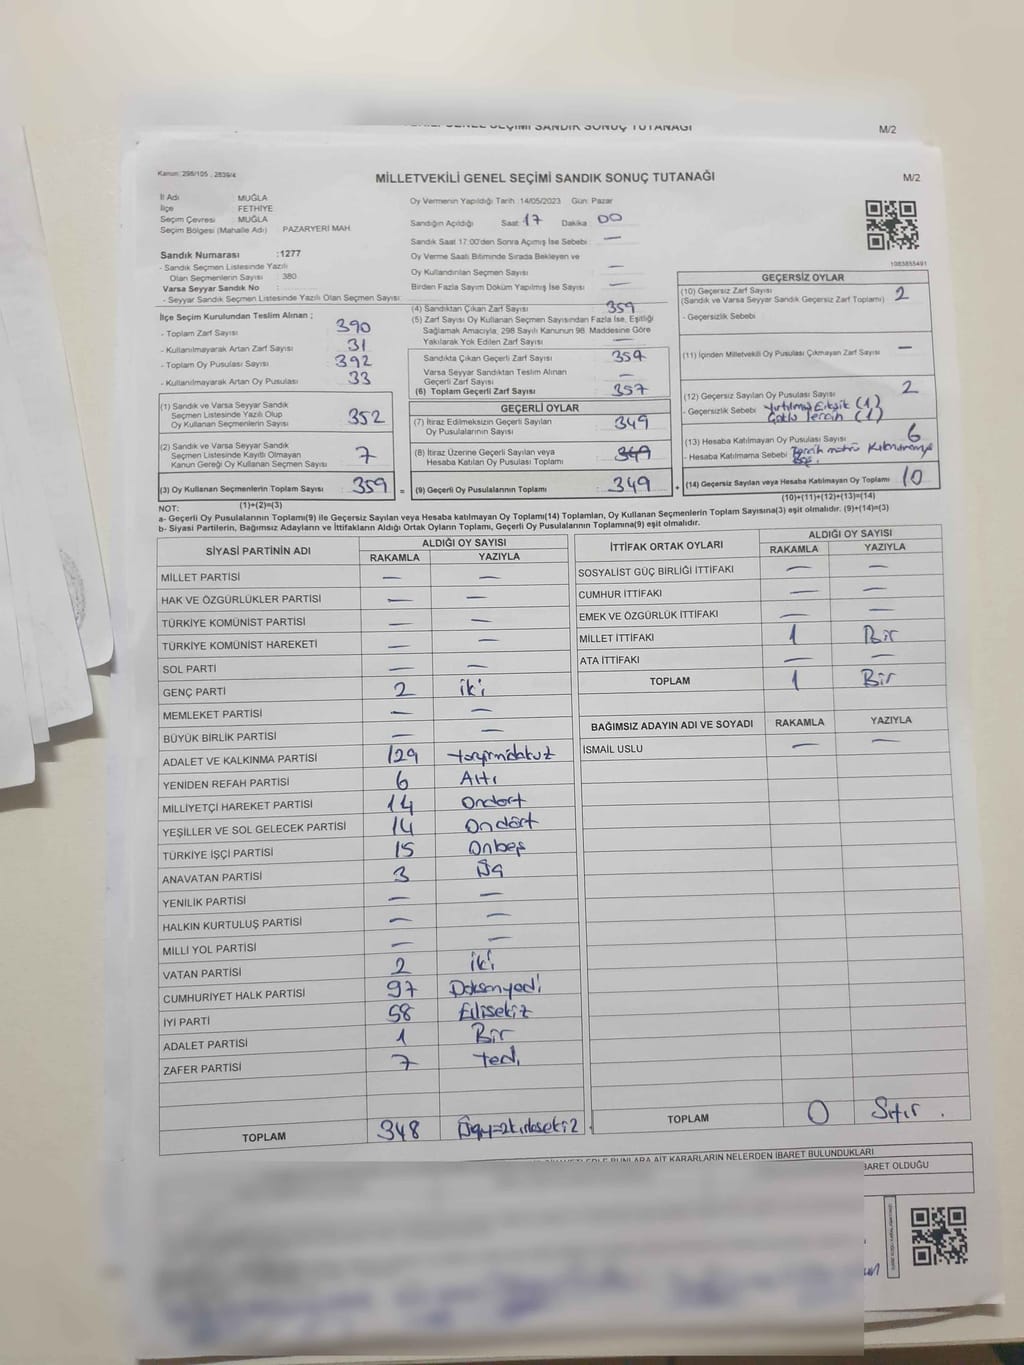 M/2
Kanun: 298/105 , 2839/4
MİLLETVEKİLİ GENEL SEÇİMİ SANDIK SONUÇ TUTANAĞI
M/2
İl Adı : MUĞLA
İlçe : FETHİYE
Seçim Çevresi : MUĞLA
Seçim Bölgesi (Mahalle Adı) : PAZARYERİ MAH.
Sandık Numarası :1277
- Sandık Seçmen Listesinde Yazılı
Olan Seçmenlerin Sayısı : 380
Varsa Seyyar Sandık No :
- Seyyar Sandık Seçmen Listesinde Yazılı Olan Seçmen Sayısı:
İlçe Seçim Kurulundan Teslim Alınan ;
- Toplam Zarf Sayısı 390
- Kullanılmayarak Artan Zarf Sayısı 31
- Toplam Oy Pusulası Sayısı 392
- Kullanılmayarak Artan Oy Pusulası 33
(1) Sandık ve Varsa Seyyar Sandık
Seçmen Listesinde Yazılı Olup
Oy Kullanan Seçmenlerin Sayısı 352
(2) Sandık ve Varsa Seyyar Sandık
Seçmen Listesinde Kayıtlı Olmayan
Kanun Gereği Oy Kullanan Seçmen Sayısı 7
(3) Oy Kullanan Seçmenlerin Toplam Sayısı 359 =
(1)+(2)=(3)
Oy Vermenin Yapıldığı Tarih :14/05/2023 Gün: Pazar
Sandığın Açıldığı Saat: 17 Dakika: 00
Sandık Saat 17:00'den Sonra Açımış İse Sebebi : —
Oy Verme Saati Bitiminde Sırada Bekleyen ve
Oy Kullandırılan Seçmen Sayısı : —
Birden Fazla Sayım Döküm Yapılmış İse Sayısı : —
(4) Sandıktan Çıkan Zarf Sayısı : 359
(5) Zarf Sayısı Oy Kullanan Seçmen Sayısından Fazla İse, Eşitliği
Sağlamak Amacıyla, 298 Sayılı Kanunun 98. Maddesine Göre
Yakılarak Yok Edilen Zarf Sayısı : —
Sandıkta Çıkan Geçerli Zarf Sayısı :
Varsa Seyyar Sandıktan Teslim Alınan
Geçerli Zarf Sayısı : —
(6) Toplam Geçerli Zarf Sayısı : 357
GEÇERLİ OYLAR
(7) İtiraz Edilmeksizin Geçerli Sayılan
Oy Pusulalarının Sayısı : 349
(8) İtiraz Üzerine Geçerli Sayılan veya
Hesaba Katılan Oy Pusulası Toplamı : 349
(9) Geçerli Oy Pusulalarının Toplamı : 349 +
1083855491
GEÇERSİZ OYLAR
(10) Geçersiz Zarf Sayısı : 2
(Sandık ve Varsa Seyyar Sandık Geçersiz Zarf Toplamı)
- Geçersizlik Sebebi :
(11) İçinden Milletvekili Oy Pusulası Çıkmayan Zarf Sayısı : —
(12) Geçersiz Sayılan Oy Pusulası Sayısı : 2
- Geçersizlik Sebebi : Yırtılmış Eksik (1)
Çoklu Tercih (1)
(13) Hesaba Katılmayan Oy Pusulası Sayısı : 6
- Hesaba Katılmama Sebebi : Tercih mührü
(14) Geçersiz Sayılan veya Hesaba Katılmayan Oy Toplamı : 10
(10)+(11)+(12)+(13)=(14)
NOT:
a- Geçerli Oy Pusulalarının Toplamı(9) ile Geçersiz Sayılan veya Hesaba katılmayan Oy Toplamı(14) Toplamları, Oy Kullanan Seçmenlerin Toplam Sayısına(3) eşit olmalıdır. (9)+(14)=(3)
b- Siyasi Partilerin, Bağımsız Adayların ve İttifakların Aldığı Ortak Oyların Toplamı, Geçerli Oy Pusulalarının Toplamına(9) eşit olmalıdır.
SİYASİ PARTİNİN ADI ALDIĞI OY SAYISI
RAKAMLA YAZIYLA
MİLLET PARTİSİ — —
HAK VE ÖZGÜRLÜKLER PARTİSİ — —
TÜRKİYE KOMÜNİST PARTİSİ — —
TÜRKİYE KOMÜNİST HAREKETİ — —
SOL PARTİ — —
GENÇ PARTİ 2 iki
MEMLEKET PARTİSİ — —
BÜYÜK BİRLİK PARTİSİ — —
ADALET VE KALKINMA PARTİSİ 129
YENİDEN REFAH PARTİSİ 6 Altı
MİLLİYETÇİ HAREKET PARTİSİ 14 Ondört
YEŞİLLER VE SOL GELECEK PARTİSİ 14 Ondört
TÜRKİYE İŞÇİ PARTİSİ 15 Onbeş
ANAVATAN PARTİSİ 3 Üç
YENİLİK PARTİSİ — —
HALKIN KURTULUŞ PARTİSİ — —
MİLLİ YOL PARTİSİ — —
VATAN PARTİSİ 2 iki
CUMHURİYET HALK PARTİSİ 97 Doksanyedi
İYİ PARTİ 58 Ellisekiz
ADALET PARTİSİ 1 Bir
ZAFER PARTİSİ 7 Yedi
TOPLAM 348 Üçyüzkırksekiz
İTTİFAK ORTAK OYLARI ALDIĞI OY SAYISI
RAKAMLA YAZIYLA
SOSYALİST GÜÇ BİRLİĞİ İTTİFAKI — —
CUMHUR İTTİFAKI — —
EMEK VE ÖZGÜRLÜK İTTİFAKI — —
MİLLET İTTİFAKI 1 Bir
ATA İTTİFAKI — —
TOPLAM 1 Bir
BAĞIMSIZ ADAYIN ADI VE SOYADI RAKAMLA YAZIYLA
İSMAİL USLU — —
TOPLAM 0 Sıfır .
BUNLARA AİT KARARLARIN NELERDEN İBARET BULUNDUKLARI
BARET OLDUĞU